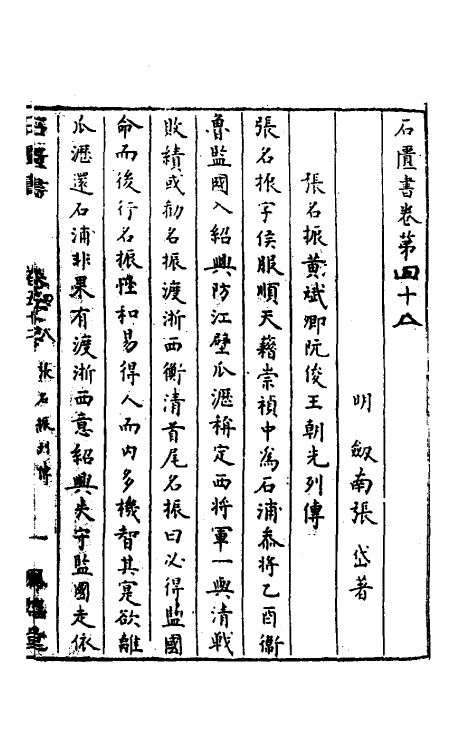 石匱書卷第四十八
明　劒南張岱著
張名振黃斌卿阮俊王朝先列傳
張名振字侯服順天籍崇禎中為石浦叅將乙酉衞
魯監國入紹興防江壁瓜瀝稱定西將軍一與清戰
敗績或勸名振渡浙西衝清首尾名振曰必得監國
命而後行名振性和易得人而內多機智其寔欲離
瓜瀝還石浦非果有渡浙西意紹興失守監國走依
石匱書
張名振列傳
一
鳳嬉堂